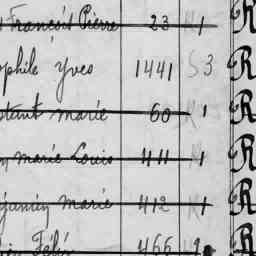 François Pierre 23 1 R
ophile Yves 1441 3 R
stant Marie 60 1 R
Marie Louis 411 1 R
jamin Marie 412 1 R
Félix 466 1 R